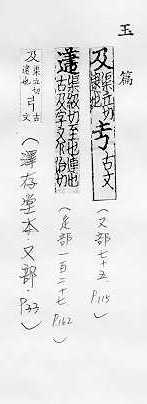 玉篇
及 渠立切 逮也 古文 (又部七十五 P.115)
渠級切至也連也古及字又 切 (辵部一百二十七 P.162)
及 渠立切 逮也 古文 (澤存堂本 又部 P.33)